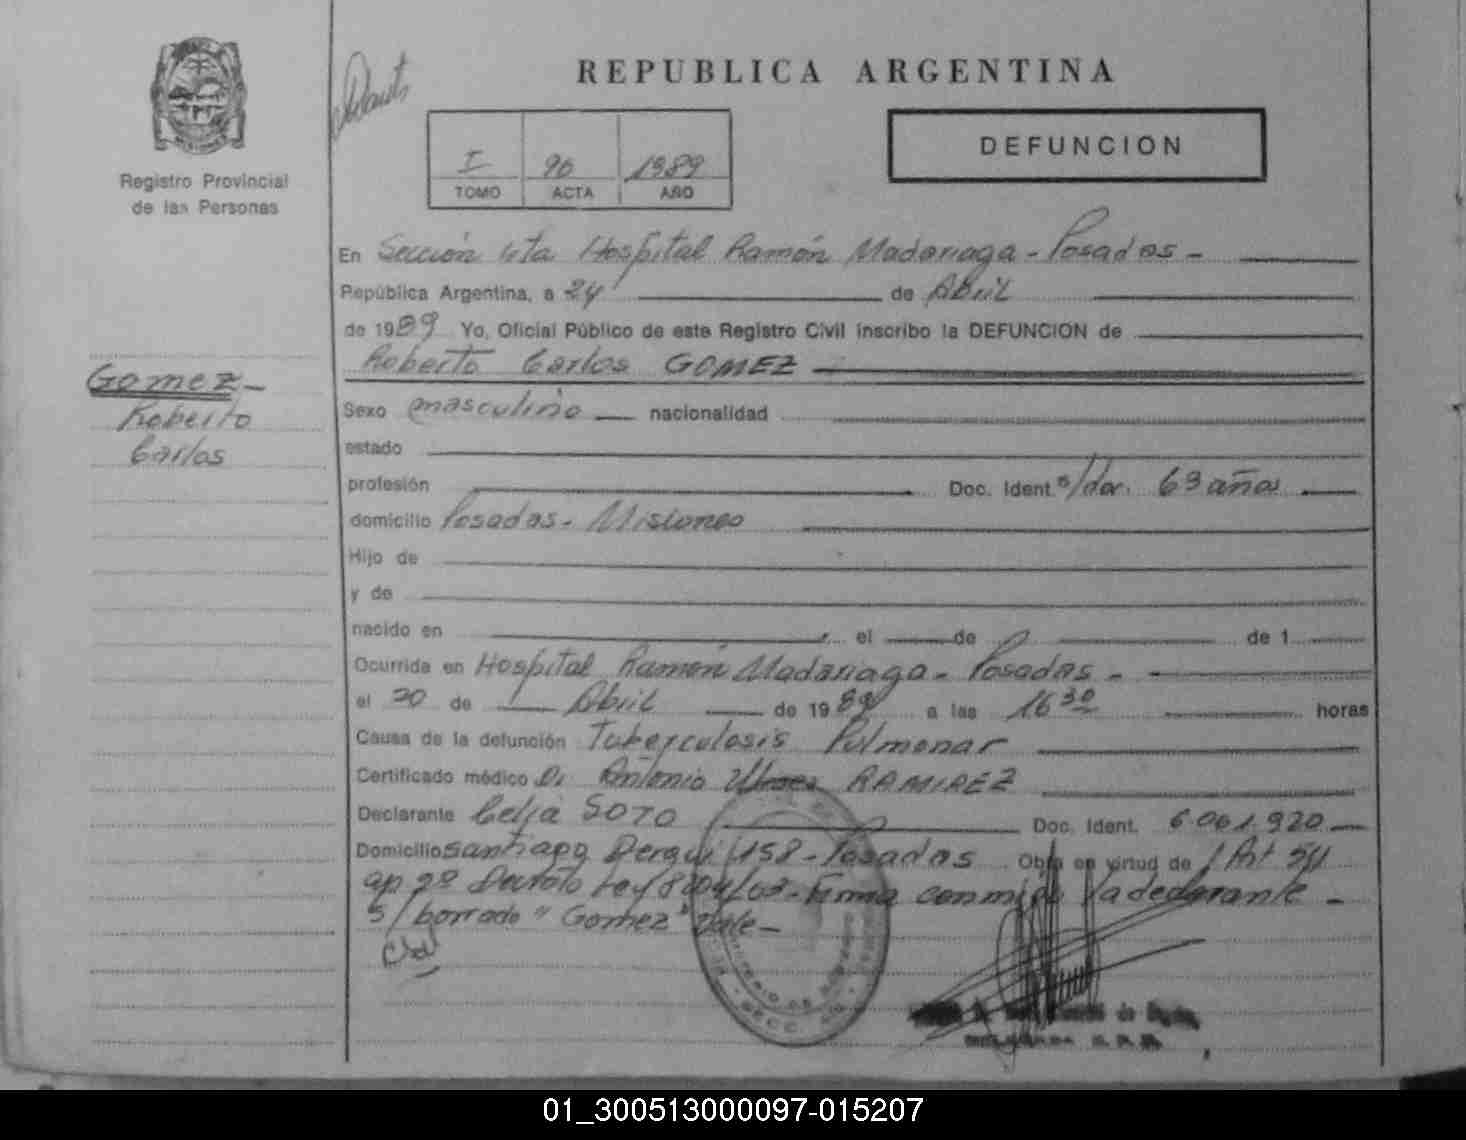 REPUBLICA ARGENTINA
I 96 1989
TOMO ACTA AÑO
DEFUNCION
Registro Provincial
de las Personas
Gomez
Roberto
Carlos
En Sección 4ta Hospital Ramón Madariaga - Posadas -
República Argentina, a 24 de Abril
de 1989 Yo, Oficial Público de este Registro Civil inscribo la DEFUNCION de
Roberto Carlos GOMEZ
Sexo masculino nacionalidad
estado
profesión Doc. Ident. 63 años
domicilio Posadas - Misiones
Hijo de
y de
nacido en el de de 1
Ocurrida en Hospital Ramón Madariaga - Posadas -
el 20 de Abril de 1989 a las 16 30 horas
Causa de la defunción Tuberculosis Pulmonar
Certificado médico Dr Antonio RAMIREZ
Declarante Celia SOTO Doc. Ident. 6.061.920
Domicilio Santiago Derqui 158 - Posadas Obra en virtud de Art 54
ap 2º Decreto Ley 8204/63 - Firma conmigo la declarante -
s/borrado "Gomez" Vale -
01_300513000097-015207